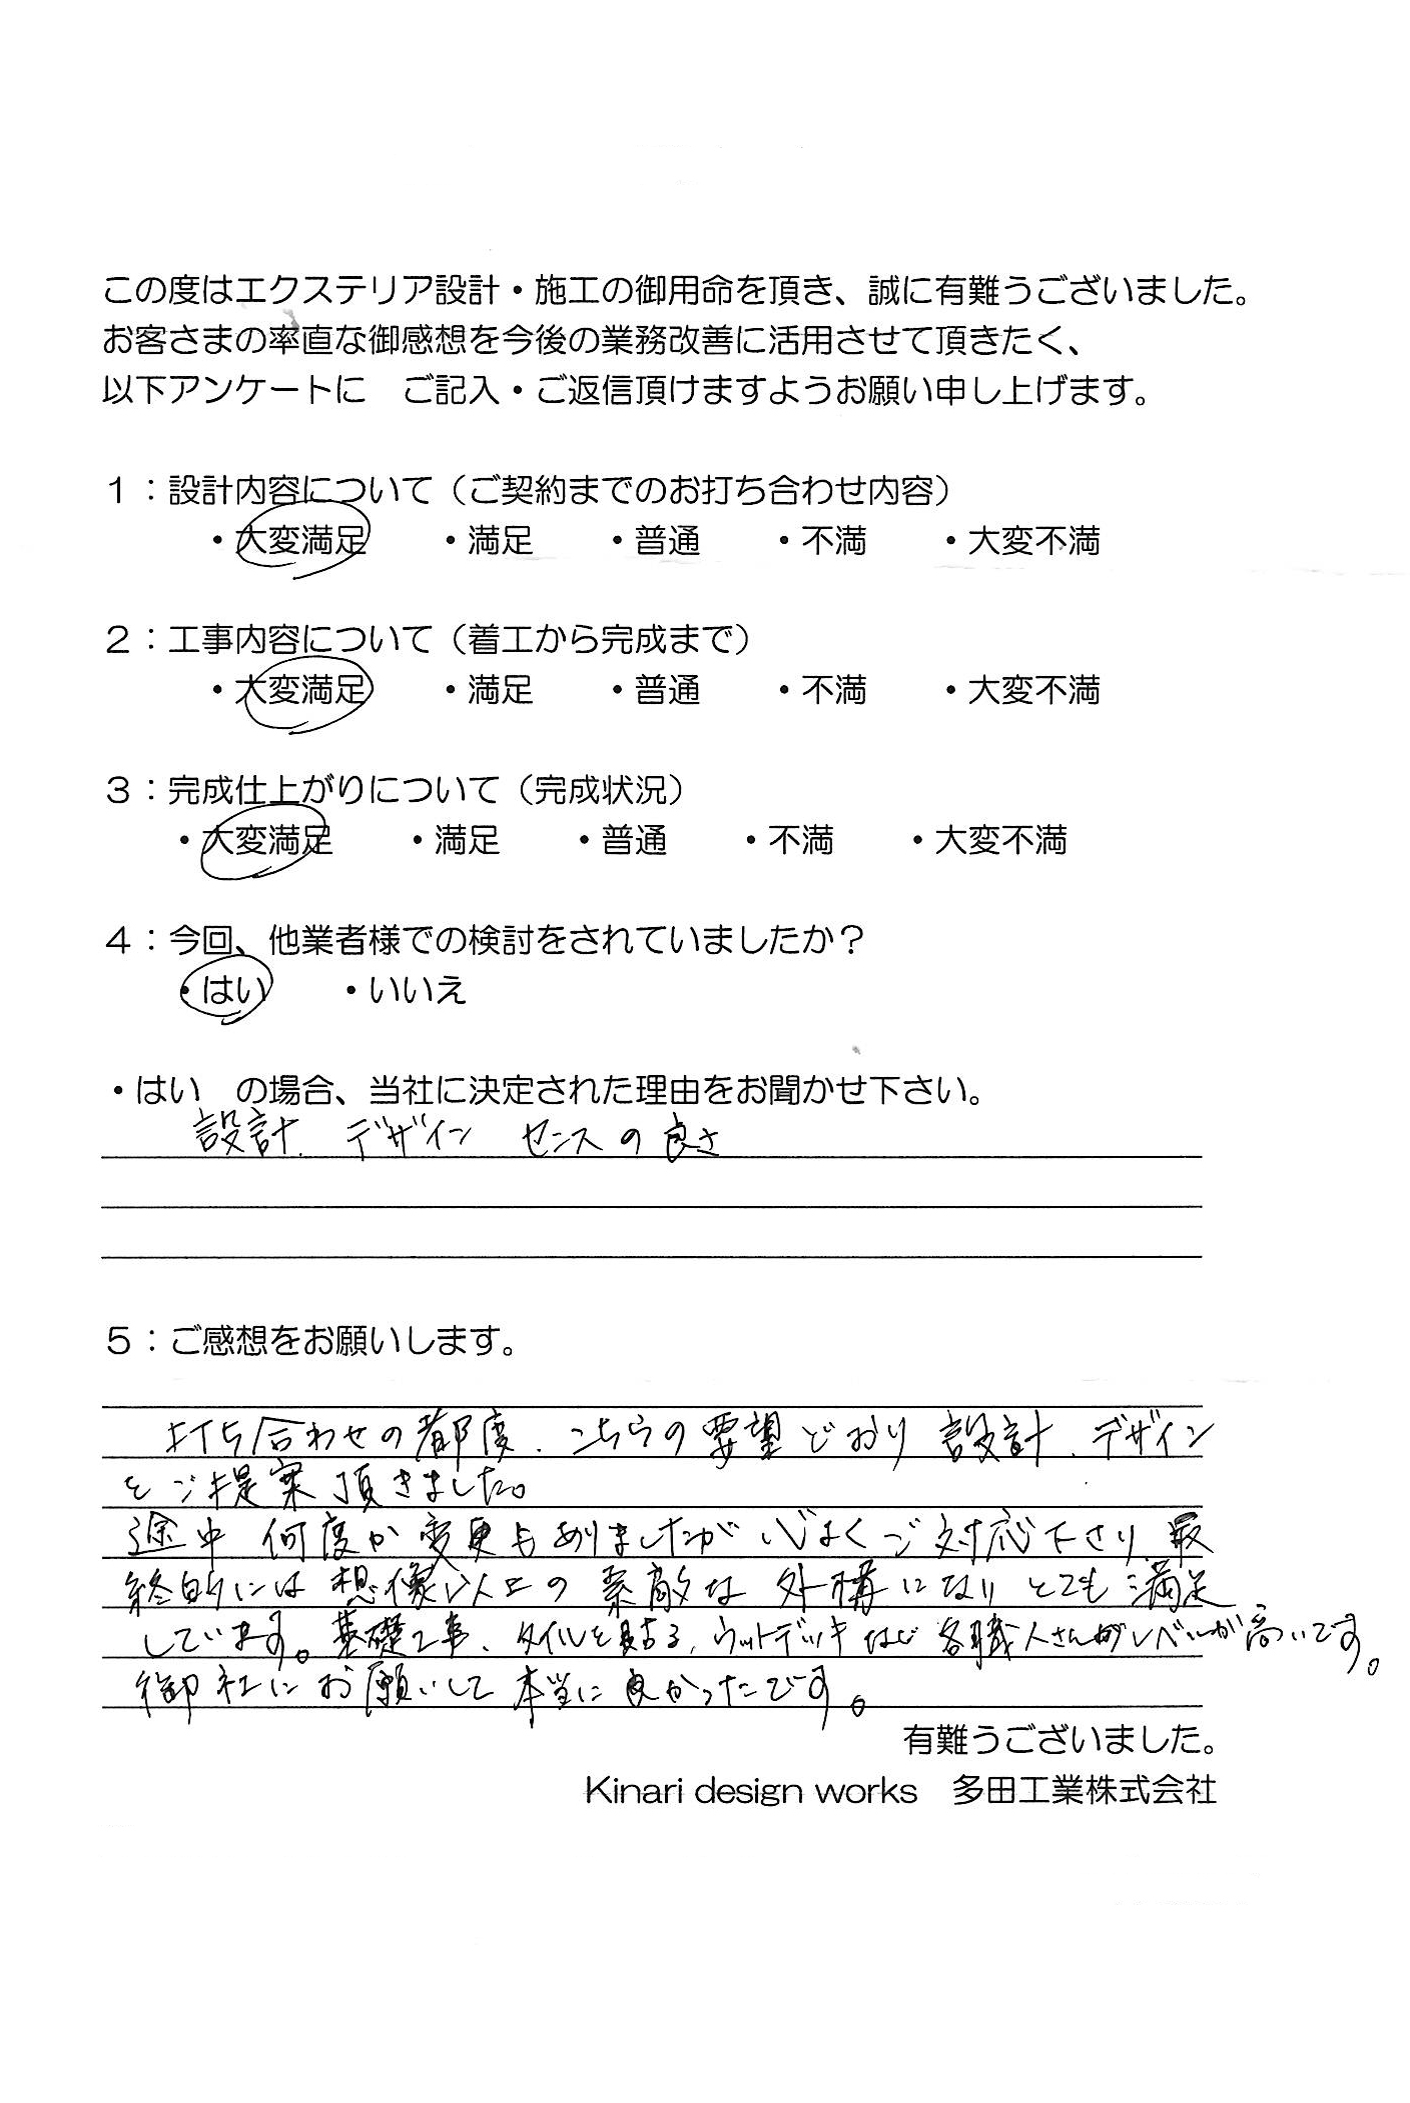 この度はエクステリア設計・施工の御用命を頂き、誠に有難うございました。
お客さまの率直な御感想を今後の業務改善に活用させて頂きたく、
以下アンケートに　ご記入・ご返信頂けますようお願い申し上げます。
１：設計内容について（ご契約までのお打ち合わせ内容）
・大変満足　　・満足　　・普通　　・不満　　・大変不満
２：工事内容について（着工から完成まで）
・大変満足　　・満足　　・普通　　・不満　　・大変不満
３：完成仕上がりについて（完成状況）
・大変満足　　・満足　　・普通　　・不満　　・大変不満
４：今回、他業者様での検討をされていましたか？
・はい　　・いいえ
・はい　の場合、当社に決定された理由をお聞かせ下さい。
設計、デザイン　センスの良さ
５：ご感想をお願いします。
打ち合わせの都度、こちらの要望どおり設計、デザイン
をご提案頂きました。
途中何度か変更もありましたが心よくご対応下さり、最
終的には想像以上の素敵な外構になりとても満足
しています。基礎工事、タイルを貼る、ウットデッキなど各職人さんがレベルが高いです。
御社にお願いして本当に良かったです。
有難うございました。
Kinari design works　多田工業株式会社